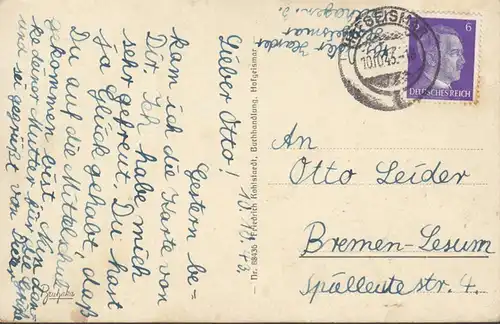 Lieber Otto! 10.10.43
Gestern be=
kam ich die Karte von
Dir. Ich habe mich
sehr gefreut. Du hast
ja Glück gehabt, daß
Du auf die Mittelschule
gekommen bist. Nun dan=
ke Deiner Mutter für die Grüße
und sei gegrüßt von Dieter
Nr. 68436 Friedrich Kohlstardt, Buchhandlung, Hofgeismar
HOFGEISMAR
10.10.43
6
DEUTSCHES REICH
An
Otto Leider
Bremen-Lesum
Spälleutestr. 4.